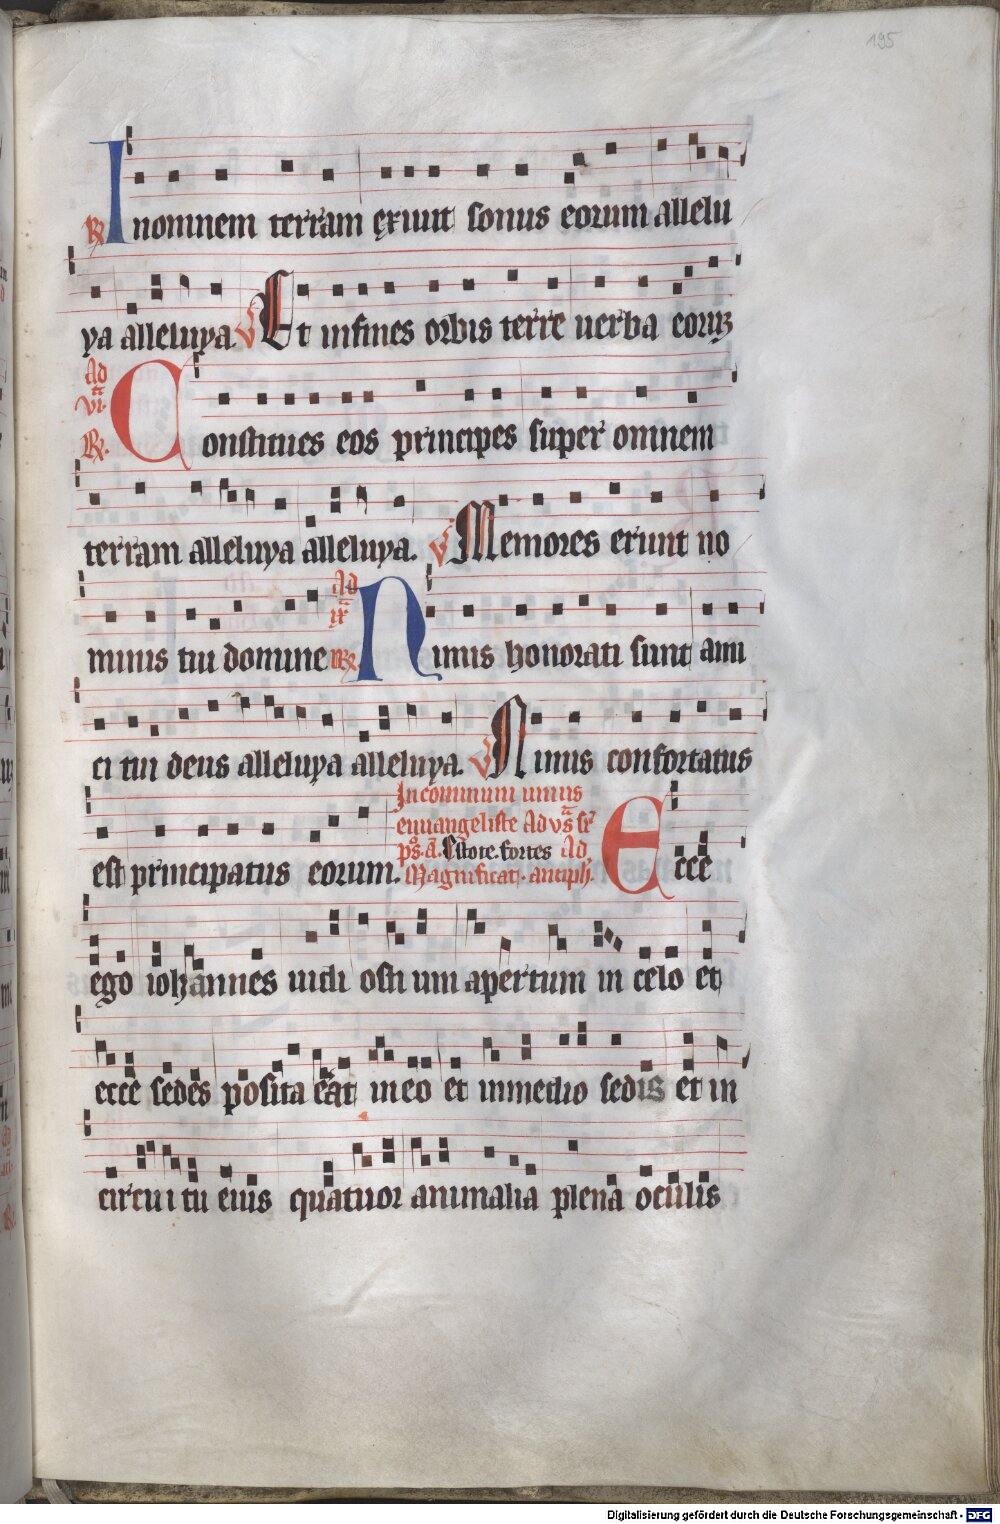 195
R Inomnem terram exiuit sonus eorum allelu
ya alleluya. V Et infines orbis terre uerba eorum
Ad
VI.
R. Constitues eos principes super omnem
terram alleluya alleluya. V Memores erunt no
minis tui domine Ad ix R Nimis honorati sunt ami
ci tui deus alleluya alleluya. V Nimis confortatus
est principatus eorum. In commun unius
euuangeliste Ad vs
ps. a. Estote fortes Ad
Magnificat. antiph. Ecce
ego iohannes uidi ostium apertum in celo et
ecce sedes posita erat in eo et inmedio sedis et in
circuitu eius quatuor animalia plena oculis
Digitalisierung gefördert durch die Deutsche Forschungsgemeinschaft - DFG